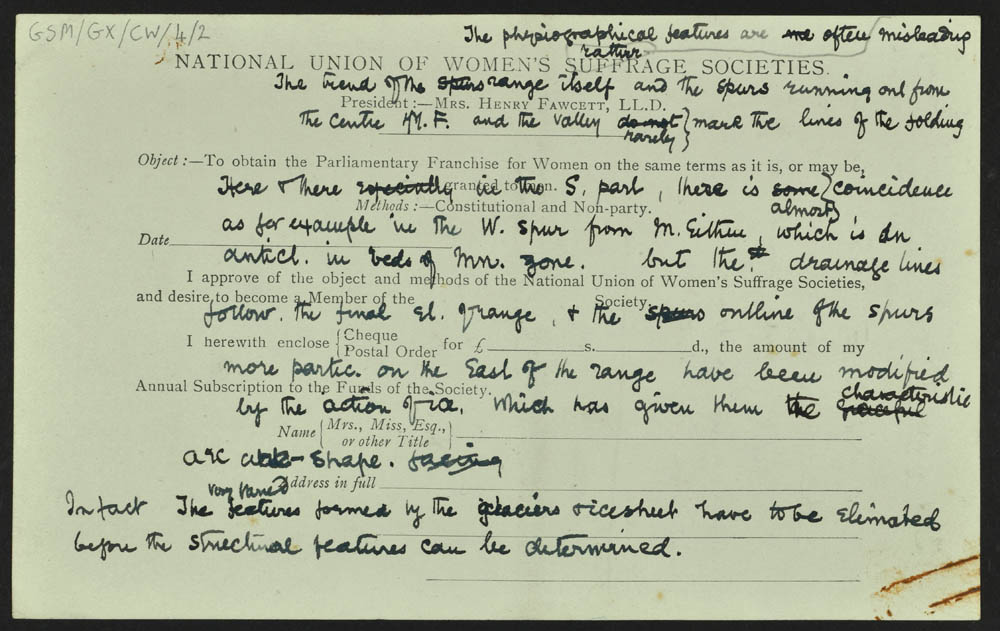 GSM/GX/CW/4/2
The physiographical features are me often misleading
rather
NATIONAL UNION OF WOMEN'S SUFFRAGE SOCIETIES.
The trend of the spurs range itself and the spurs running out from
President:—MRS. HENRY FAWCETT, LL.D.
the centre M.F. and the valley do not } mark the lines of the folding
rarely
Object:—To obtain the Parliamentary Franchise for Women on the same terms as it is, or may be,
granted to men.
Here & there especially in the S. part, there is some } coincidence
almost
Methods:—Constitutional and Non-party.
as for example in the W. spur from M. Eithin, which is an
Date
anticl. in beds of Mn. zone. but the drainage lines
I approve of the object and methods of the National Union of Women's Suffrage Societies,
and desire to become a Member of the Society.
follow. the final el. of range, & the spurs outline of the spurs
I herewith enclose { Cheque
Postal Order for £ s. d., the amount of my
more partic. on the East of the range have been modified
Annual Subscription to the Funds of the Society.
characteristic
by the action of ice, which has given them the graceful
Name { Mrs., Miss, Esq.,
or other Title
arc shape. facing
Address in full
very varied
In fact The features formed by the glaciers & icesheet have to be elimated
before the structural features can be determined.